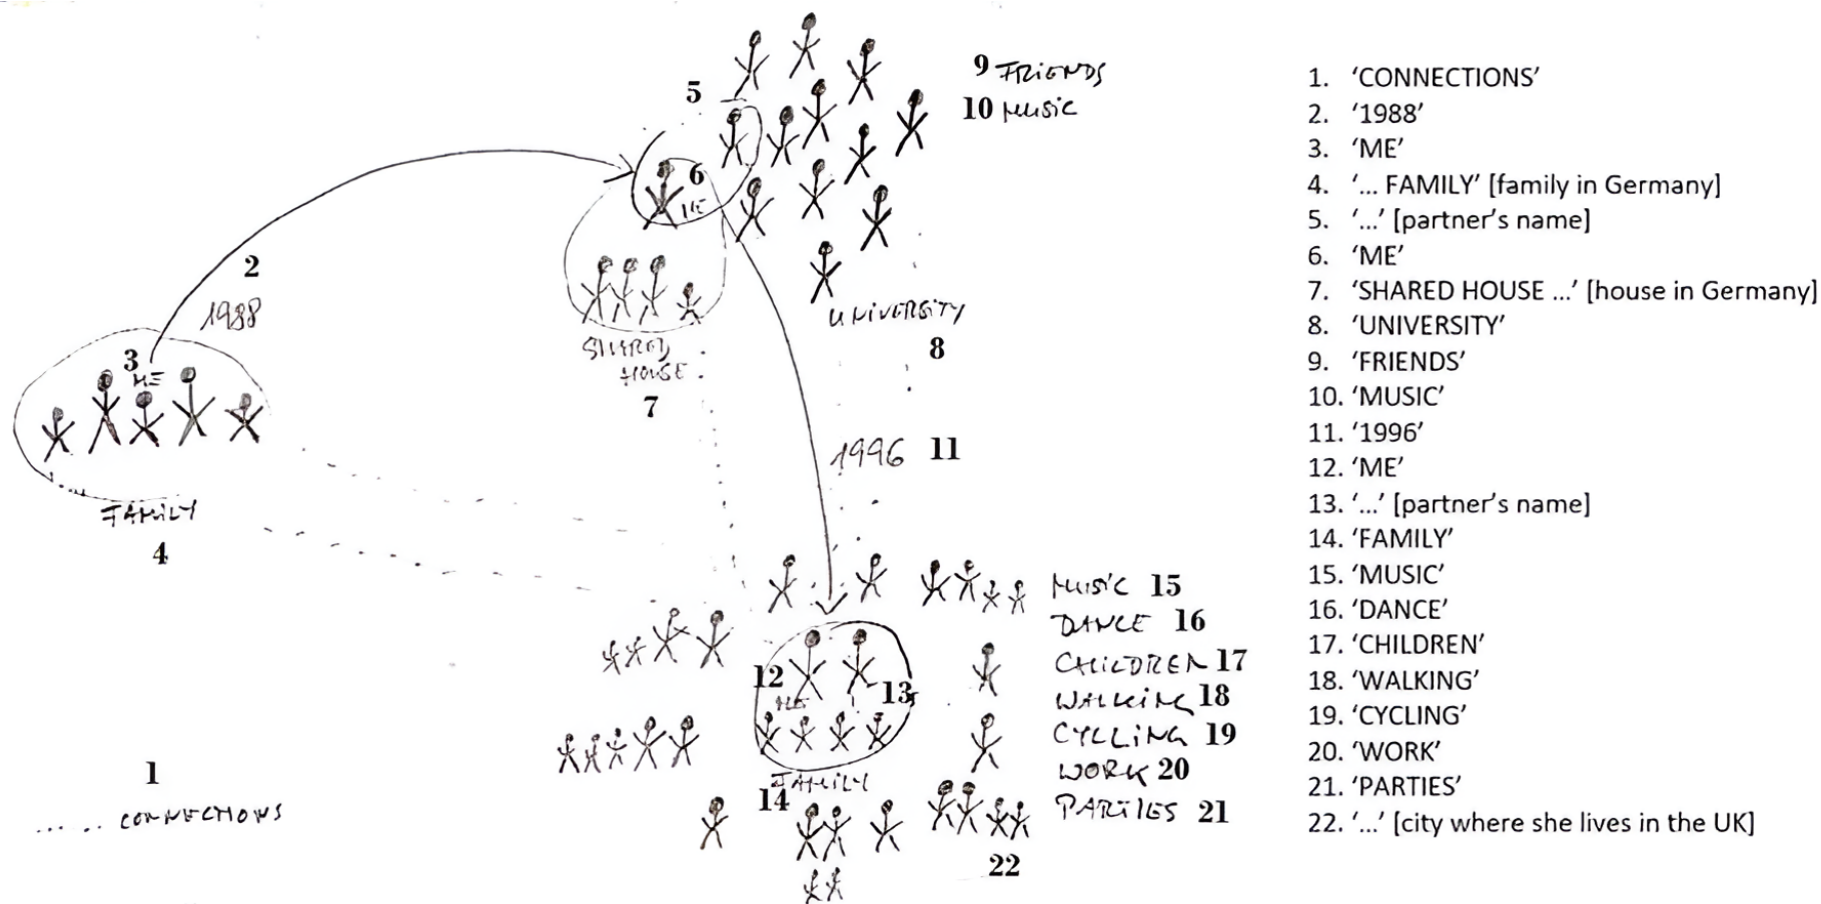 9 FRiENDS
10 MUSiC
5
6
ME
2
1988
3
ME
UNiVERSiTY
8
SHARED
HOUSE
7
FAMiLY
4
1996 11
MUSiC 15
DANCE 16
CHiLDREN 17
WALKiNG 18
CYCLiNG 19
WORK 20
PARTiES 21
12
ME
13
FAMiLY
14
22
1
CONNECTIONS
1. ‘CONNECTIONS’
2. ‘1988’
3. ‘ME’
4. ‘... FAMILY’ [family in Germany]
5. ‘...’ [partner's name]
6. ‘ME’
7. ‘SHARED HOUSE ...’ [house in Germany]
8. ‘UNIVERSITY’
9. ‘FRIENDS’
10. ‘MUSIC’
11. ‘1996’
12. ‘ME’
13. ‘...’ [partner's name]
14. ‘FAMILY’
15. ‘MUSIC’
16. ‘DANCE’
17. ‘CHILDREN’
18. ‘WALKING’
19. ‘CYCLING’
20. ‘WORK’
21. ‘PARTIES’
22. ‘...’ [city where she lives in the UK]